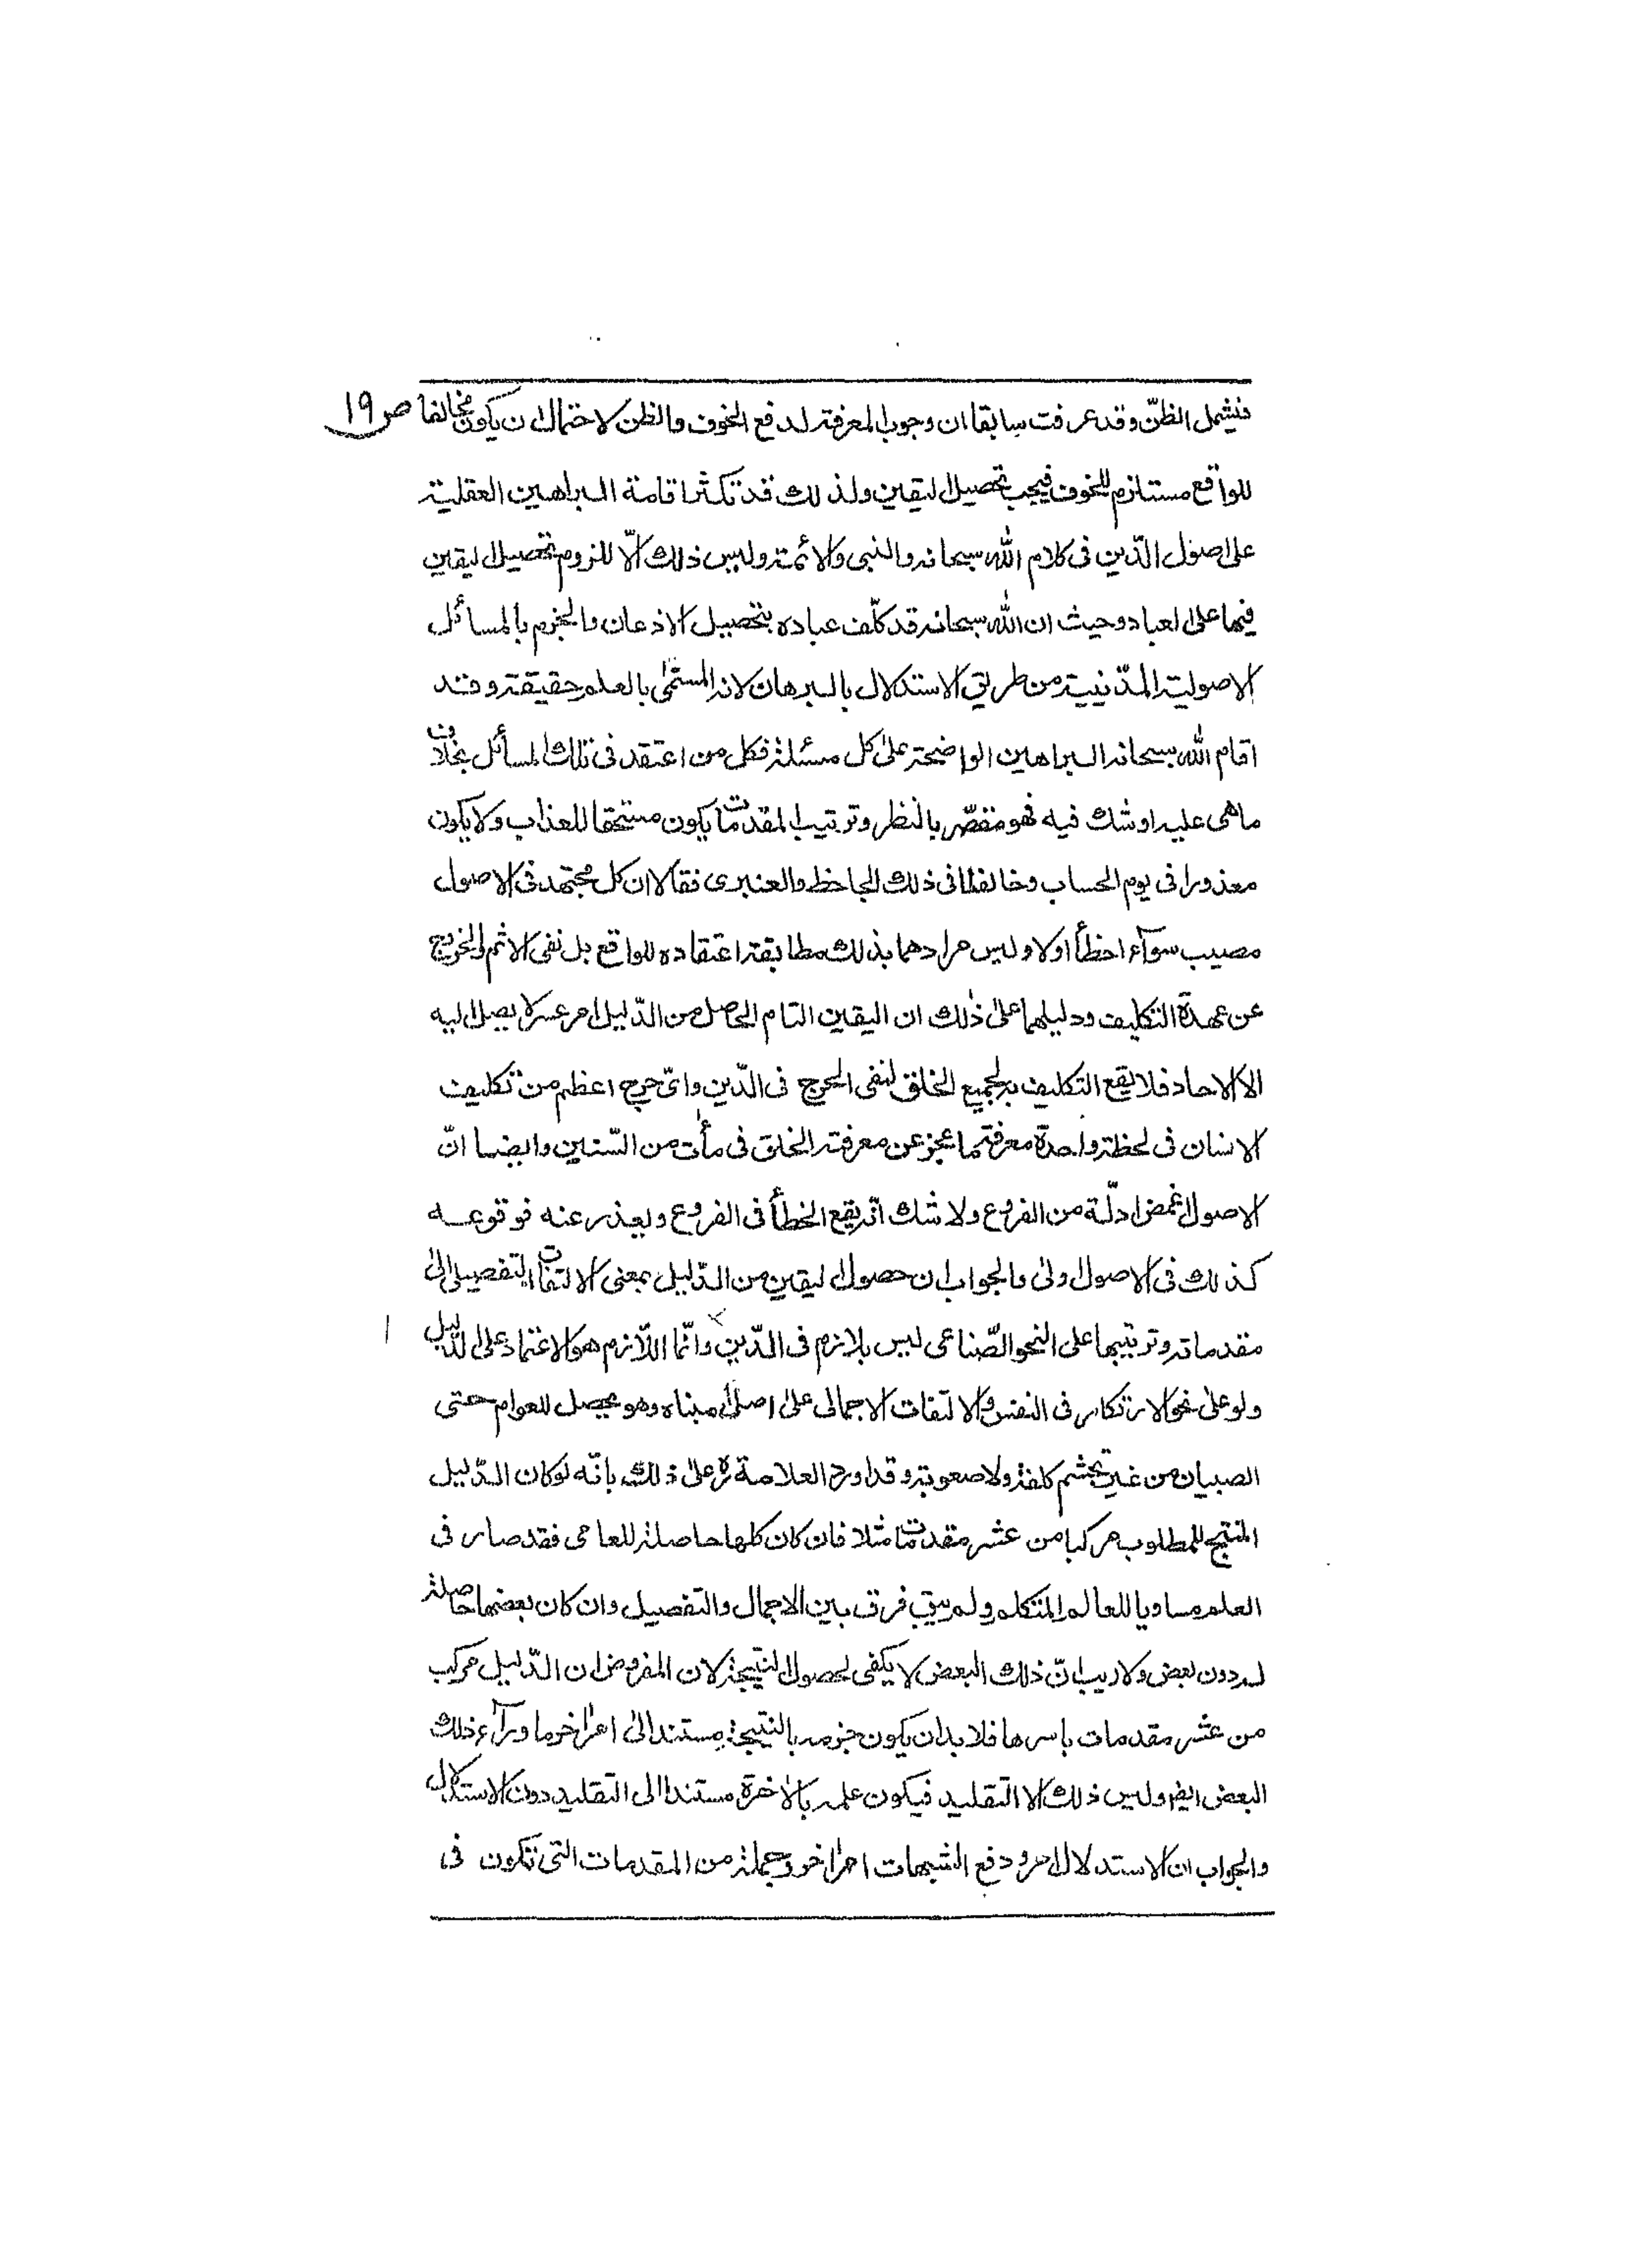 فيشمل الظنّ وقد عرفت سابقا ان وجوب المعرفة لدفع الخوف والظن لاحتمال ان يكون مخالفا ص ١٩
للواقع مستلزم للخوف فيجب تحصيل اليقين ولذلك قد تكثر اقامة البراهين العقلية
على اصول الدّين فى كلام الله سبحانه والنبى والائمة وليس ذلك الّا للزوم تحصيل اليقين
فيها على العباد وحيث ان الله سبحانه قد كلّف عباده بتحصيل الاذعان والجزم بالمسائل
الاصولية الدّينية من طريق الاستدلال بالبرهان لانه المسمّى بالعلم حقيقة وقد
اقام الله سبحانه البراهين الواضحة على كل مسئلة فكل من اعتقد فى تلك المسائل بخلاف
ما هى عليه او شك فيه فهو مقصّر بالنظر وترتيب المقدمات يكون مستحقا للعذاب ولا يكون
معذورا فى يوم الحساب وخالفنا فى ذلك الجاحظ والعنبرى فقالا ان كل مجتهد فى الاصول
مصيب سوآء اخطأ اولا وليس مرادهما بذلك مطابقة اعتقاده للواقع بل نفى الاثم والخروج
عن عهدة التكليف ودليلهما على ذلك ان اليقين التام الحاصل من الدّليل امر عسر لا يصل اليه
الا الاحاد فلا يقع التكليف به لجميع الخلق لنفى الحرج فى الدّين واىّ حرج اعظم من تكليف
الانسان فى لحظة واحدة معرفة ما عجز عن معرفته الخلق فى مأت من السّنين وايضا انّ
الاصول اغمض ادلّة من الفروع ولا شك انّه يقع الخطأ فى الفروع ويعذر عنه فوقوعه
كذلك فى الاصول اولى والجواب ان حصول اليقين من الدّليل بمعنى الالتفات التفصيلى الى
مقدماته وترتيبها على النحو الصّناعى ليس بلازم فى الدّين وانّما اللّازم هو الاعتماد على الدّليل
ولو على نحو الارتكاز فى النفس والالتفات الاجمالى على اصل مبناه وهو يحصل للعوام حتى
الصبيان من غير تجشم كلفة ولا صعوبة وقد اورد العلامة ره على ذلك بانّه لو كان الدّليل
المنتج للمطلوب مركبا من عشر مقدمات مثلا فان كان كلها حاصلة للعامى فقد صار فى
العلم مساويا للعالم المتكلم ولم يبق فرق بين الاجمال والتفصيل وان كان بعضها حاصلة
له دون بعض ولا ريب انّ ذلك البعض لا يكفى لحصول النتيجة لان المفروض ان الدّليل مركب
من عشر مقدمات باسرها فلا بد ان يكون جزمه بالنتيجة مستندا الى امر اخر ما ورآء ذلك
البعض ايض وليس ذلك الا التقليد فيكون علمه بالاخرة مستندا الى التقليد دون الاستدلال
والجواب ان الاستدلال امر ودفع الشبهات امر اخر وجملة من المقدمات التى تكون فى